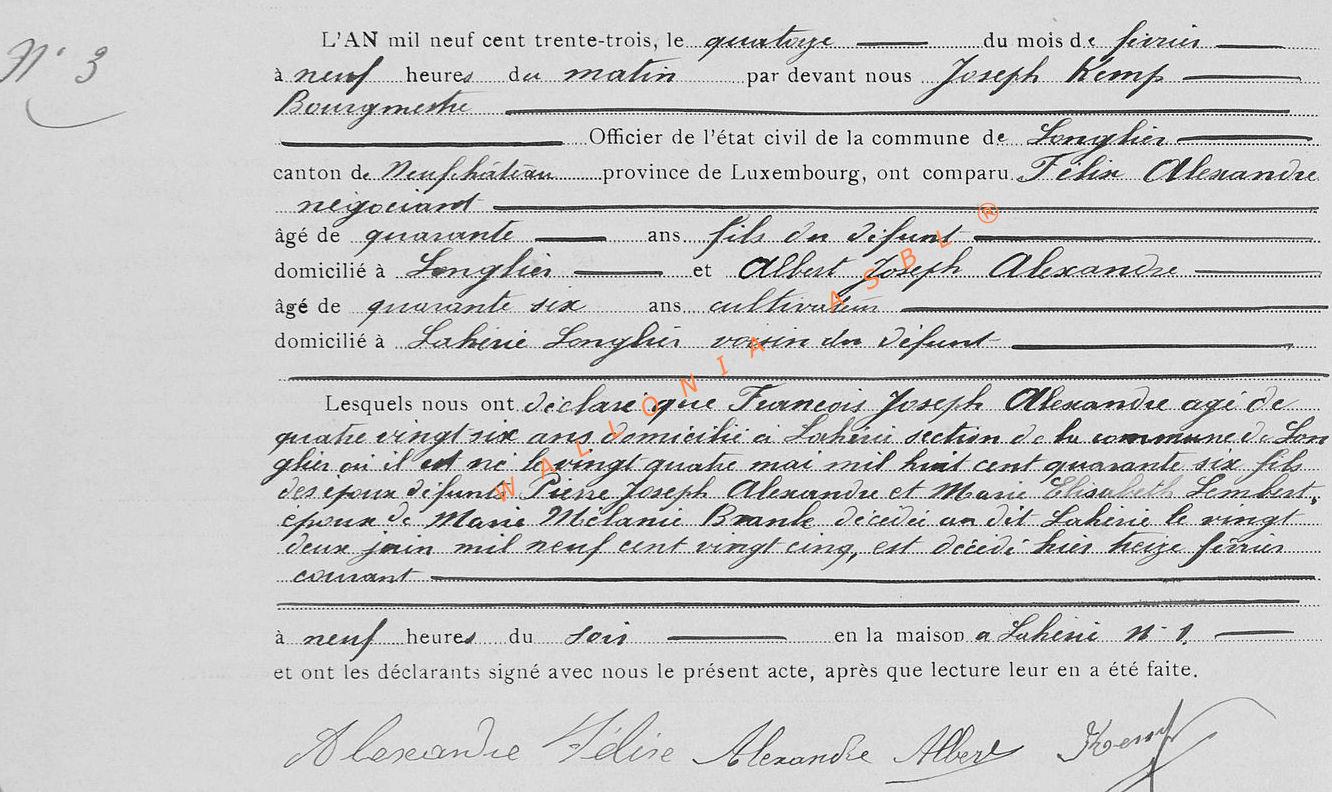 N° 3
L'AN mil neuf cent trente-trois, le quatorze du mois de février
à neuf heures du matin par devant nous Joseph Kemp
Bourgmestre
Officier de l'état civil de la commune de Longlier
canton de Neufchâteau province de Luxembourg, ont comparu Félix Alexandre
négociant
âgé de quarante ans fils du défunt
domicilié à Longlier et Albert Joseph Alexandre
âgé de quarante six ans cultivateur
domicilié à Lahérie Longlier voisin du défunt
Lesquels nous ont déclaré que François Joseph Alexandre agé de
quatre vingt six ans domicilié à Lahérie section de la commune de Lon
glier où il est né le vingt quatre mai mil huit cent quarante six fils
des époux défunts Pierre Joseph Alexandre et Marie Elisabeth Lembert,
époux de Marie Mélanie décédée au dit Lahérie le vingt
deux juin mil neuf cent vingt cinq, est décédé hier treize février
courant
à neuf heures du soir en la maison a Lahérie N° 1
et ont les déclarants signé avec nous le présent acte, après que lecture leur en a été faite.
Alexandre Félix Alexandre Albert Kemp
WALLONIA ASBL ®